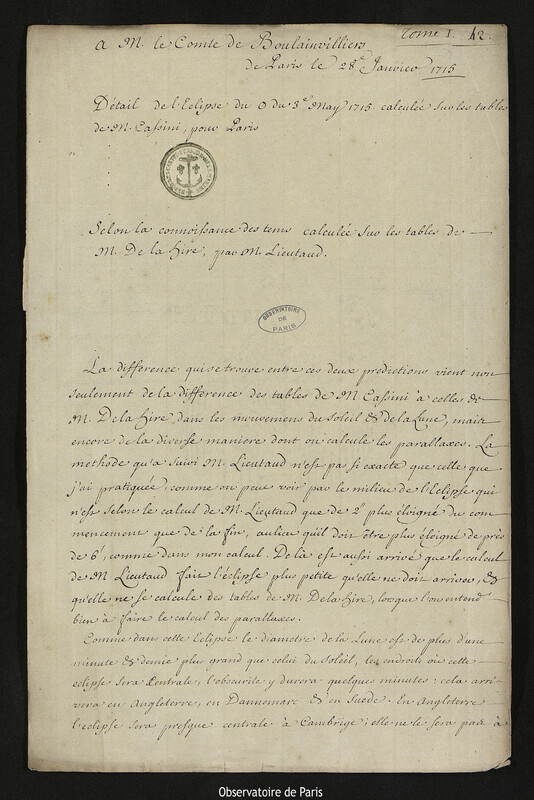 Tome I. 42.
A M. le Comte de Boulainvilliers
de Paris le 28e Janvier 1715
Détail de l'Eclipse du O du 3e May 1715. calculée sur les tables
de M. Cassini, pour Paris
Selon la connoissance des tems calculée sur les tables de
M. De la hire, par M. Lieutaud.
OBSERVATOIRE
DE
PARIS
La difference qui se trouve entre ces deux predictions vient non
seulement de la difference des tables de M Cassini à celles de
M. De la hire, dans les mouvemens du soleil & de la Lune, mais
encore de la diverse maniere dont on calcule les parallaxes. La
methode qu'a suivi M. Lieutaud n'est pas si exacte que celle que
j'ai pratiquée, comme on peut voir par le milieu de l'Eclipse qui
n'est selon le calcul de M. Lieutaud que de 2' plus éloigné du com
mencement que de la fin, aulieu qu'il doit être plus éloigné de près
de 6', comme dans mon calcul. De là est aussi arrivé que le calcul
de M. Lieutaud fait l'éclipse plus petite qu'elle ne doit arriver, &
qu'elle ne se calcule des tables de M. De la hire, lorsque l'on entend
bien à faire le calcul des parallaxes.
Comme dans cette Eclipse le diametre de la Lune est de plus d'une
minute & demie plus grand que celui du soleil, les endroits où cette
eclipse sera Centrale, l'obscurité y durera quelques minutes: cela arri
vera en Angleterre, en Dannemarc & en Suede. En Angleterre
l'eclipse sera presque centrale à Cambrige; elle ne le sera pas à
Observatoire de Paris